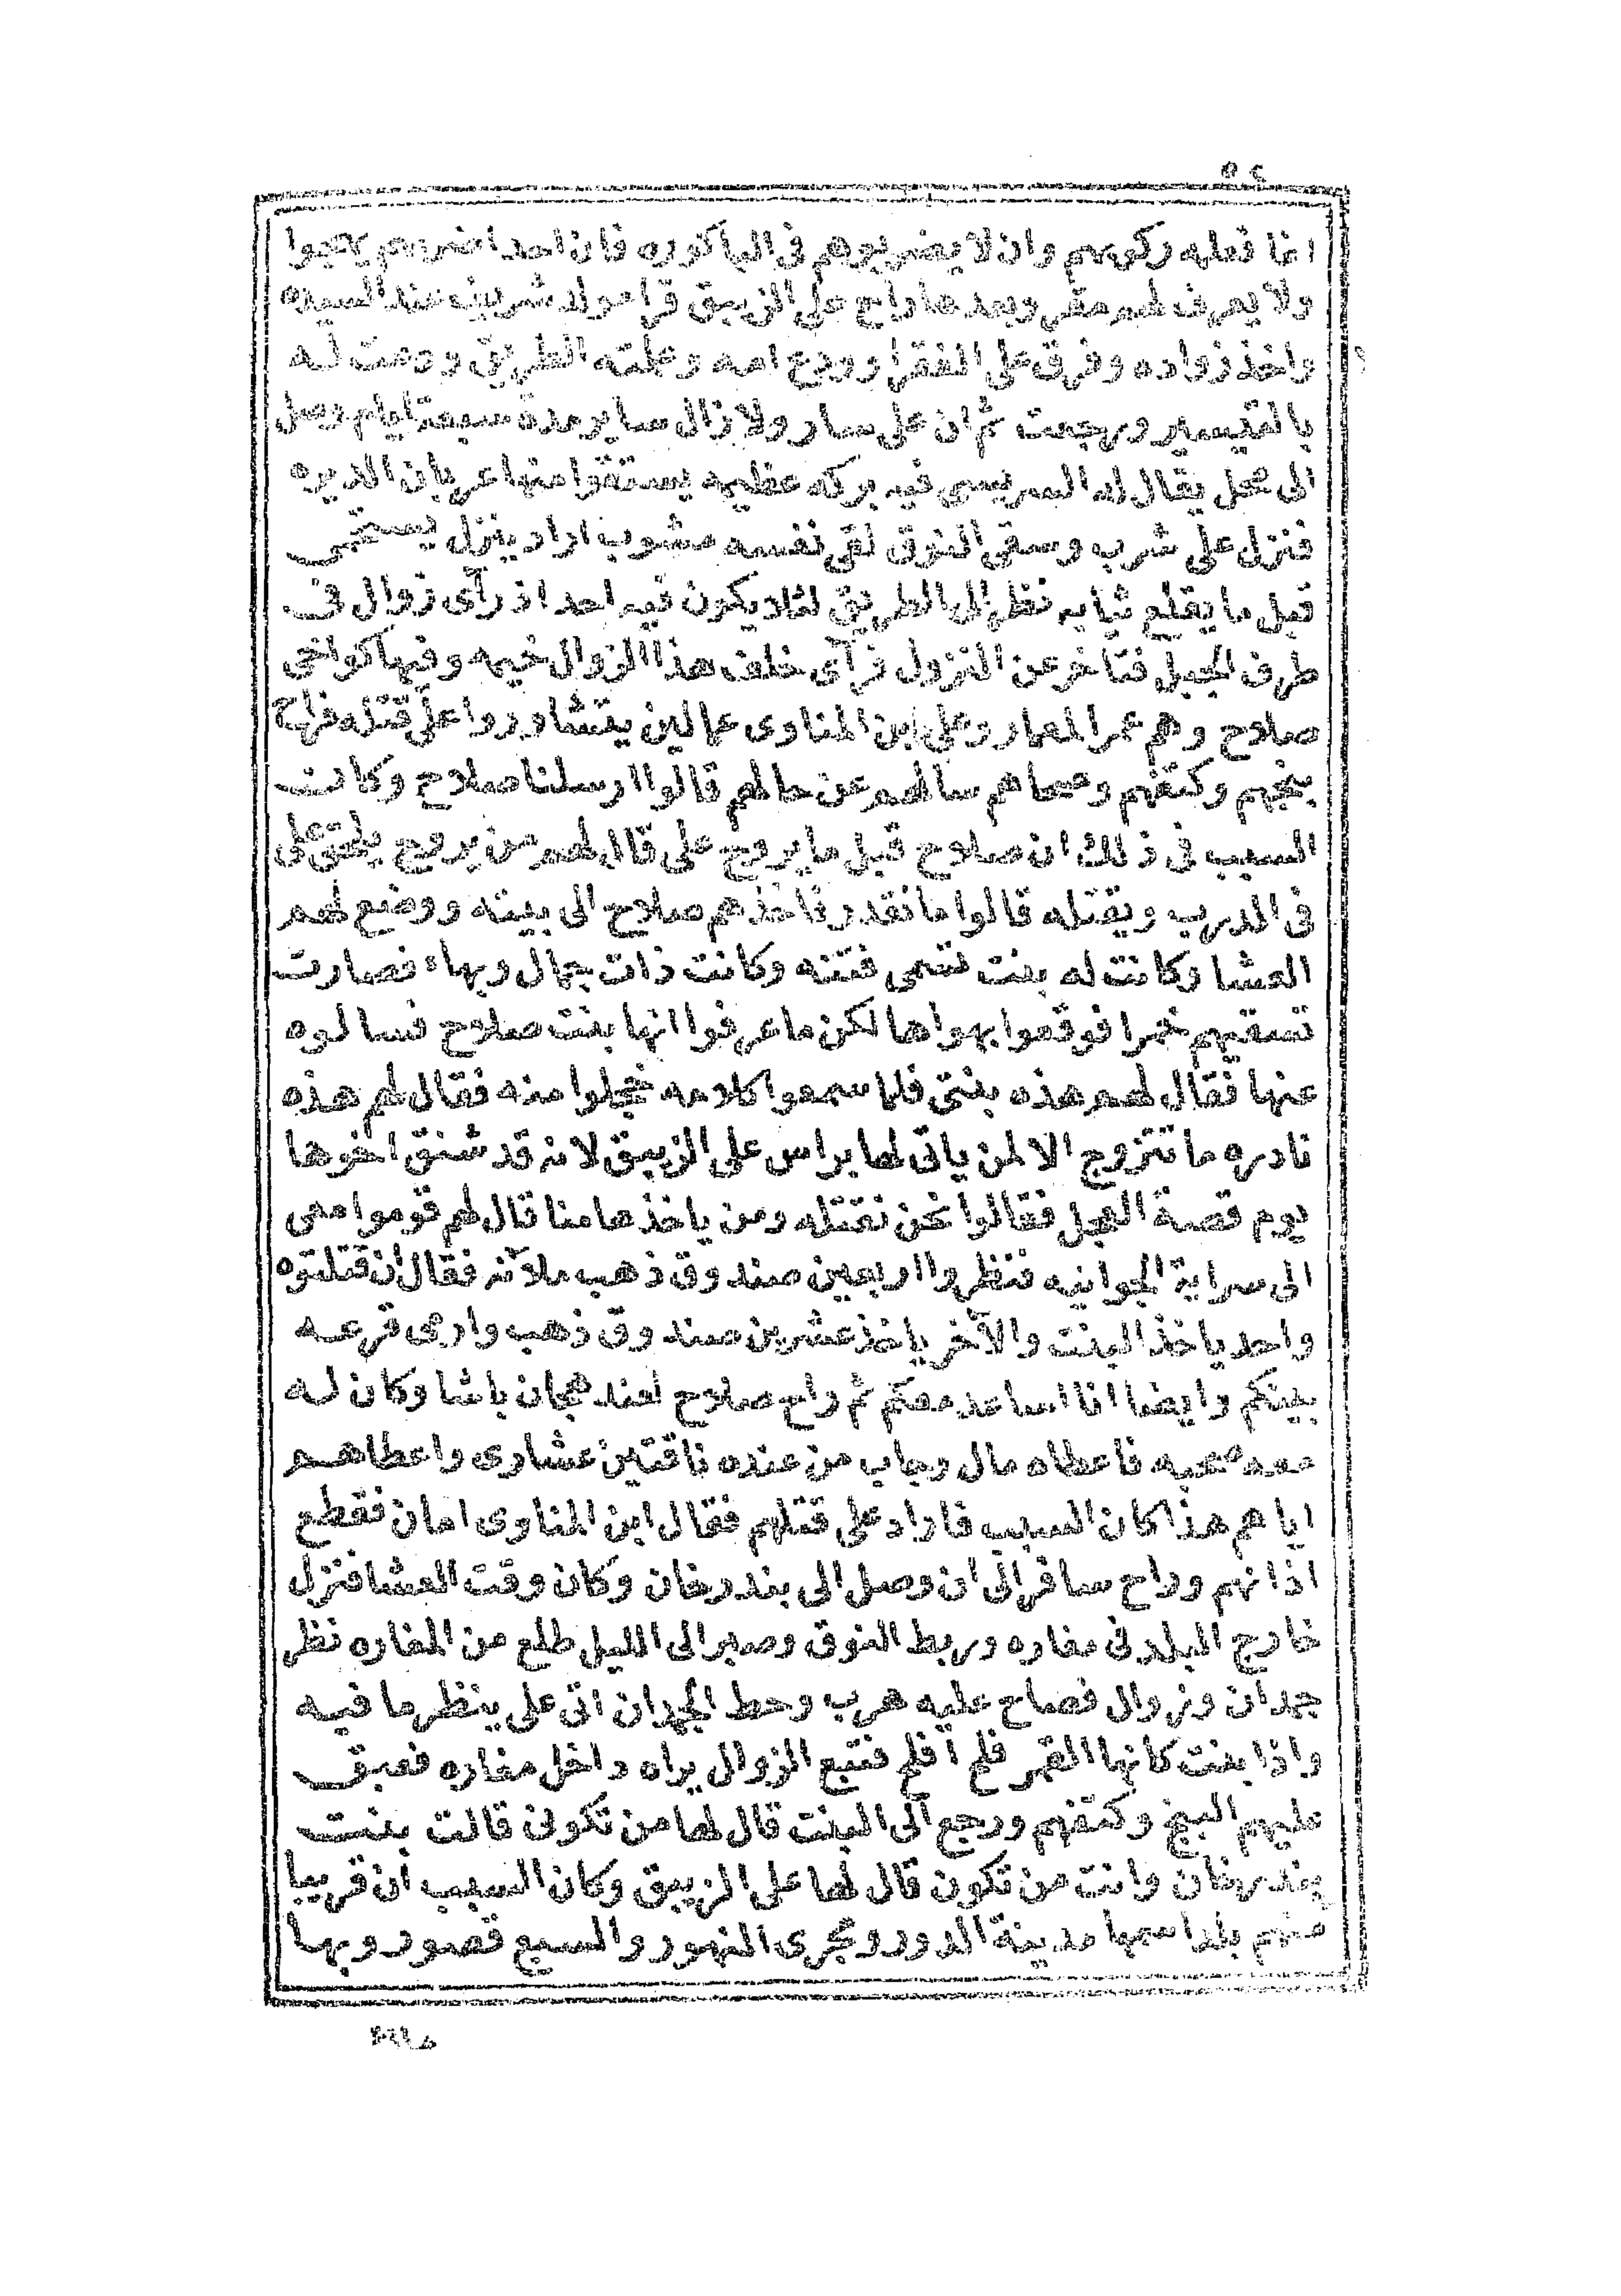 ٥٤
انما قعله ركوبهم وان لا يضربوهم فى الباكوره فان احدا ضربهم يعجوا
ولا يعرف لهم مقر وبعدها راح على الزيبق قرا مولد شريف عند السيده
واخذ زواده وفرق على الفقرا وودع امه وعلمته الطريق ودعت له
بالتيسير ورجعت ثم ان على سار ولا زال ساير مدة سبعة ايام وصل
الى محل يقال له فيه بركه عظيمه يستقوا منها عربان الديره
فنزل على شرب وسقى النوق لقى نفسه مشوب اراد ينزل يستحمى
قبل ما يقلع ثيابه نظر الى الطريق لئلا يكون فيه احد اذ رآى زوال فى
طرف الجبل فتاخر عن النزول فرآى خلف هذا الزوال خيمه وفيها كواخى
صلاح وهم عمر المعمار وعلى ابن المناوى عمالين يتشاوروا على قتله فراح
بنجهم وكتفهم وصحاهم سالهم عن حالهم قالوا ارسلنا صلاح وكانت
السبب فى ذلك ان صلاح قبل ما يروح على قال لهم من يروح يلتقى على
فى الدرب ويقتله قالوا ما نقدر فاخذهم صلاح الى بيته ووضع لهم
العشا وكانت له بنت تسمى فتنه وكانت ذات جمال وبهاء فصارت
تسقيهم خمرا فوقعوا بهواها لكن ما عرفوا انها بنت صلاح فسالوه
عنها فقال لهم هذه بنتى فلما سمعوا كلامه خجلوا منه فقال لهم هذه
نادره ما تتزوج الا لمن ياتى لها براس على الزيبق لانه قد شنق اخوها
يوم قصة العجل فقالوا نحن نقتله ومن ياخذها منا قال لهم قوموا معى
الى سراية الجوانيه فنظروا اربعين صندوق ذهب ملآنه فقال ان قتلتوه
واحد ياخذ البنت والآخر ياخذ عشرين صندوق ذهب وارمى قرعه
بينكم وايضا انا اساعد معكم ثم راح صلاح لعند هجان باشا وكان له
معه صحبه فاعطاه مال وجاب من عنده ناقتين عشارى واعطاهم
اياهم هذا كان السبب فاراد على قتلهم فقال ابن المناوى امان فقطع
اذانهم وراح سافر الى ان وصل الى بندرخان وكان وقت العشا فنزل
خارج البلد فى مغاره وربط النوق وصبر الى الليل طلع من المغاره نظر
جمدان وزوال فصاح عليه هرب وحط الجمدان اتى على ينظر ما فيه
واذا بنت كانها القمر فلم آقلم فتبع الزوال يراه داخل مغاره فعبق
عليهم البنج وكتفهم ورجع الى البنت قال لها من تكونى قالت بنت
بندرخان وانت من تكون قال لها على الزيبق وكان السبب ان قريبا
منهم بلد اسمها مدينة الدور ومجرى النهور والسبع قصور وبها